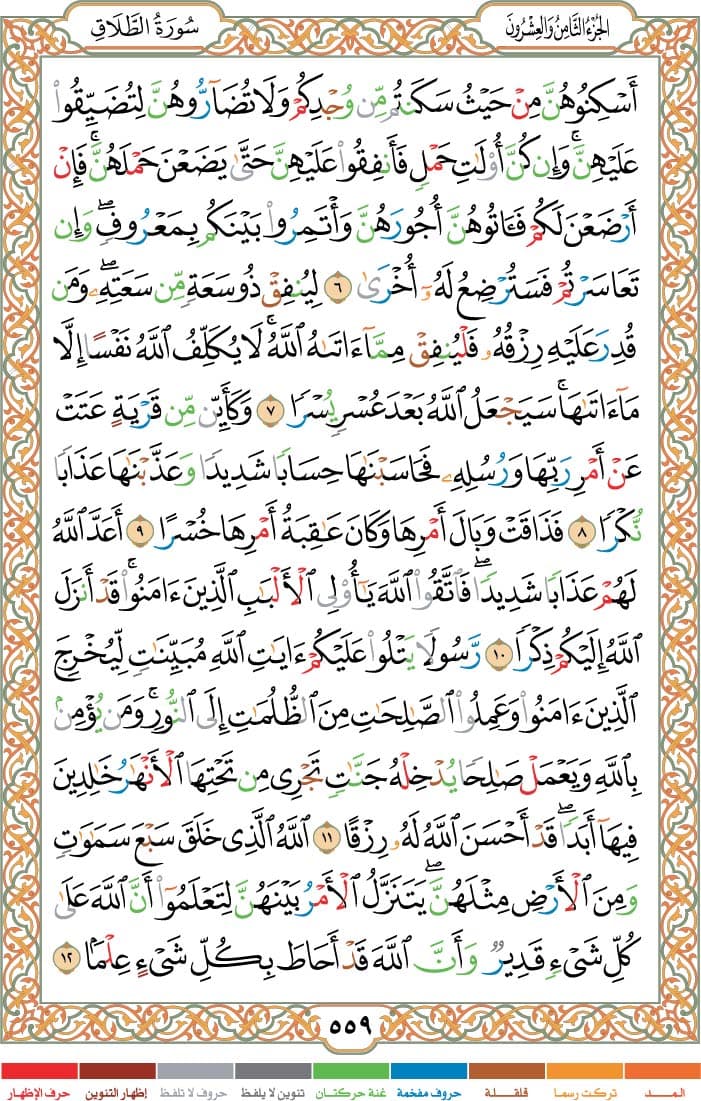 الجُزْءُ الثَّامِنُ وَالعِشْرُونَ
سُورَةُ الطَّلَاقِ
أَسْكِنُوهُنَّ مِنْ حَيْثُ سَكَنتُم مِّن وُجْدِكُمْ وَلَا تُضَآرُّوهُنَّ لِتُضَيِّقُوا۟
عَلَيْهِنَّ ۚ وَإِن كُنَّ أُو۟لَـٰتِ حَمْلٍ فَأَنفِقُوا۟ عَلَيْهِنَّ حَتَّىٰ يَضَعْنَ حَمْلَهُنَّ ۚ فَإِنْ
أَرْضَعْنَ لَكُمْ فَـَٔاتُوهُنَّ أُجُورَهُنَّ وَأْتَمِرُوا۟ بَيْنَكُم بِمَعْرُوفٍ ۖ وَإِن
تَعَاسَرْتُمْ فَسَتُرْضِعُ لَهُۥٓ أُخْرَىٰ ٦ لِيُنفِقْ ذُو سَعَةٍ مِّن سَعَتِهِۦ ۖ وَمَن
قُدِرَ عَلَيْهِ رِزْقُهُۥ فَلْيُنفِقْ مِمَّآ ءَاتَىٰهُ ٱللَّهُ ۚ لَا يُكَلِّفُ ٱللَّهُ نَفْسًا إِلَّا
مَآ ءَاتَىٰهَا ۚ سَيَجْعَلُ ٱللَّهُ بَعْدَ عُسْرٍ يُسْرًا ٧ وَكَأَيِّن مِّن قَرْيَةٍ عَتَتْ
عَنْ أَمْرِ رَبِّهَا وَرُسُلِهِۦ فَحَاسَبْنَـٰهَا حِسَابًا شَدِيدًا وَعَذَّبْنَـٰهَا عَذَابًا
نُّكْرًا ٨ فَذَاقَتْ وَبَالَ أَمْرِهَا وَكَانَ عَـٰقِبَةُ أَمْرِهَا خُسْرًا ٩ أَعَدَّ ٱللَّهُ
لَهُمْ عَذَابًا شَدِيدًا ۖ فَٱتَّقُوا۟ ٱللَّهَ يَـٰٓأُو۟لِى ٱلْأَلْبَـٰبِ ٱلَّذِينَ ءَامَنُوا۟ ۚ قَدْ أَنزَلَ
ٱللَّهُ إِلَيْكُمْ ذِكْرًا ١٠ رَّسُولًا يَتْلُوا۟ عَلَيْكُمْ ءَايَـٰتِ ٱللَّهِ مُبَيِّنَـٰتٍ لِّيُخْرِجَ
ٱلَّذِينَ ءَامَنُوا۟ وَعَمِلُوا۟ ٱلصَّـٰلِحَـٰتِ مِنَ ٱلظُّلُمَـٰتِ إِلَى ٱلنُّورِ ۚ وَمَن يُؤْمِنۢ
بِٱللَّهِ وَيَعْمَلْ صَـٰلِحًا يُدْخِلْهُ جَنَّـٰتٍ تَجْرِى مِن تَحْتِهَا ٱلْأَنْهَـٰرُ خَـٰلِدِينَ
فِيهَآ أَبَدًا ۖ قَدْ أَحْسَنَ ٱللَّهُ لَهُۥ رِزْقًا ١١ ٱللَّهُ ٱلَّذِى خَلَقَ سَبْعَ سَمَـٰوَٰتٍ
وَمِنَ ٱلْأَرْضِ مِثْلَهُنَّ ۖ يَتَنَزَّلُ ٱلْأَمْرُ بَيْنَهُنَّ لِتَعْلَمُوٓا۟ أَنَّ ٱللَّهَ عَلَىٰ
كُلِّ شَىْءٍ قَدِيرٌ وَأَنَّ ٱللَّهَ قَدْ أَحَاطَ بِكُلِّ شَىْءٍ عِلْمًۢا ١٢
٥٥٩
المــــد
تركت رسما
قلقــلة
حروف مفخمة
غنة حركتـان
تنوين لا يلفظ
حروف لا تلفظ
إظهار التنوين
حرف الإظهار